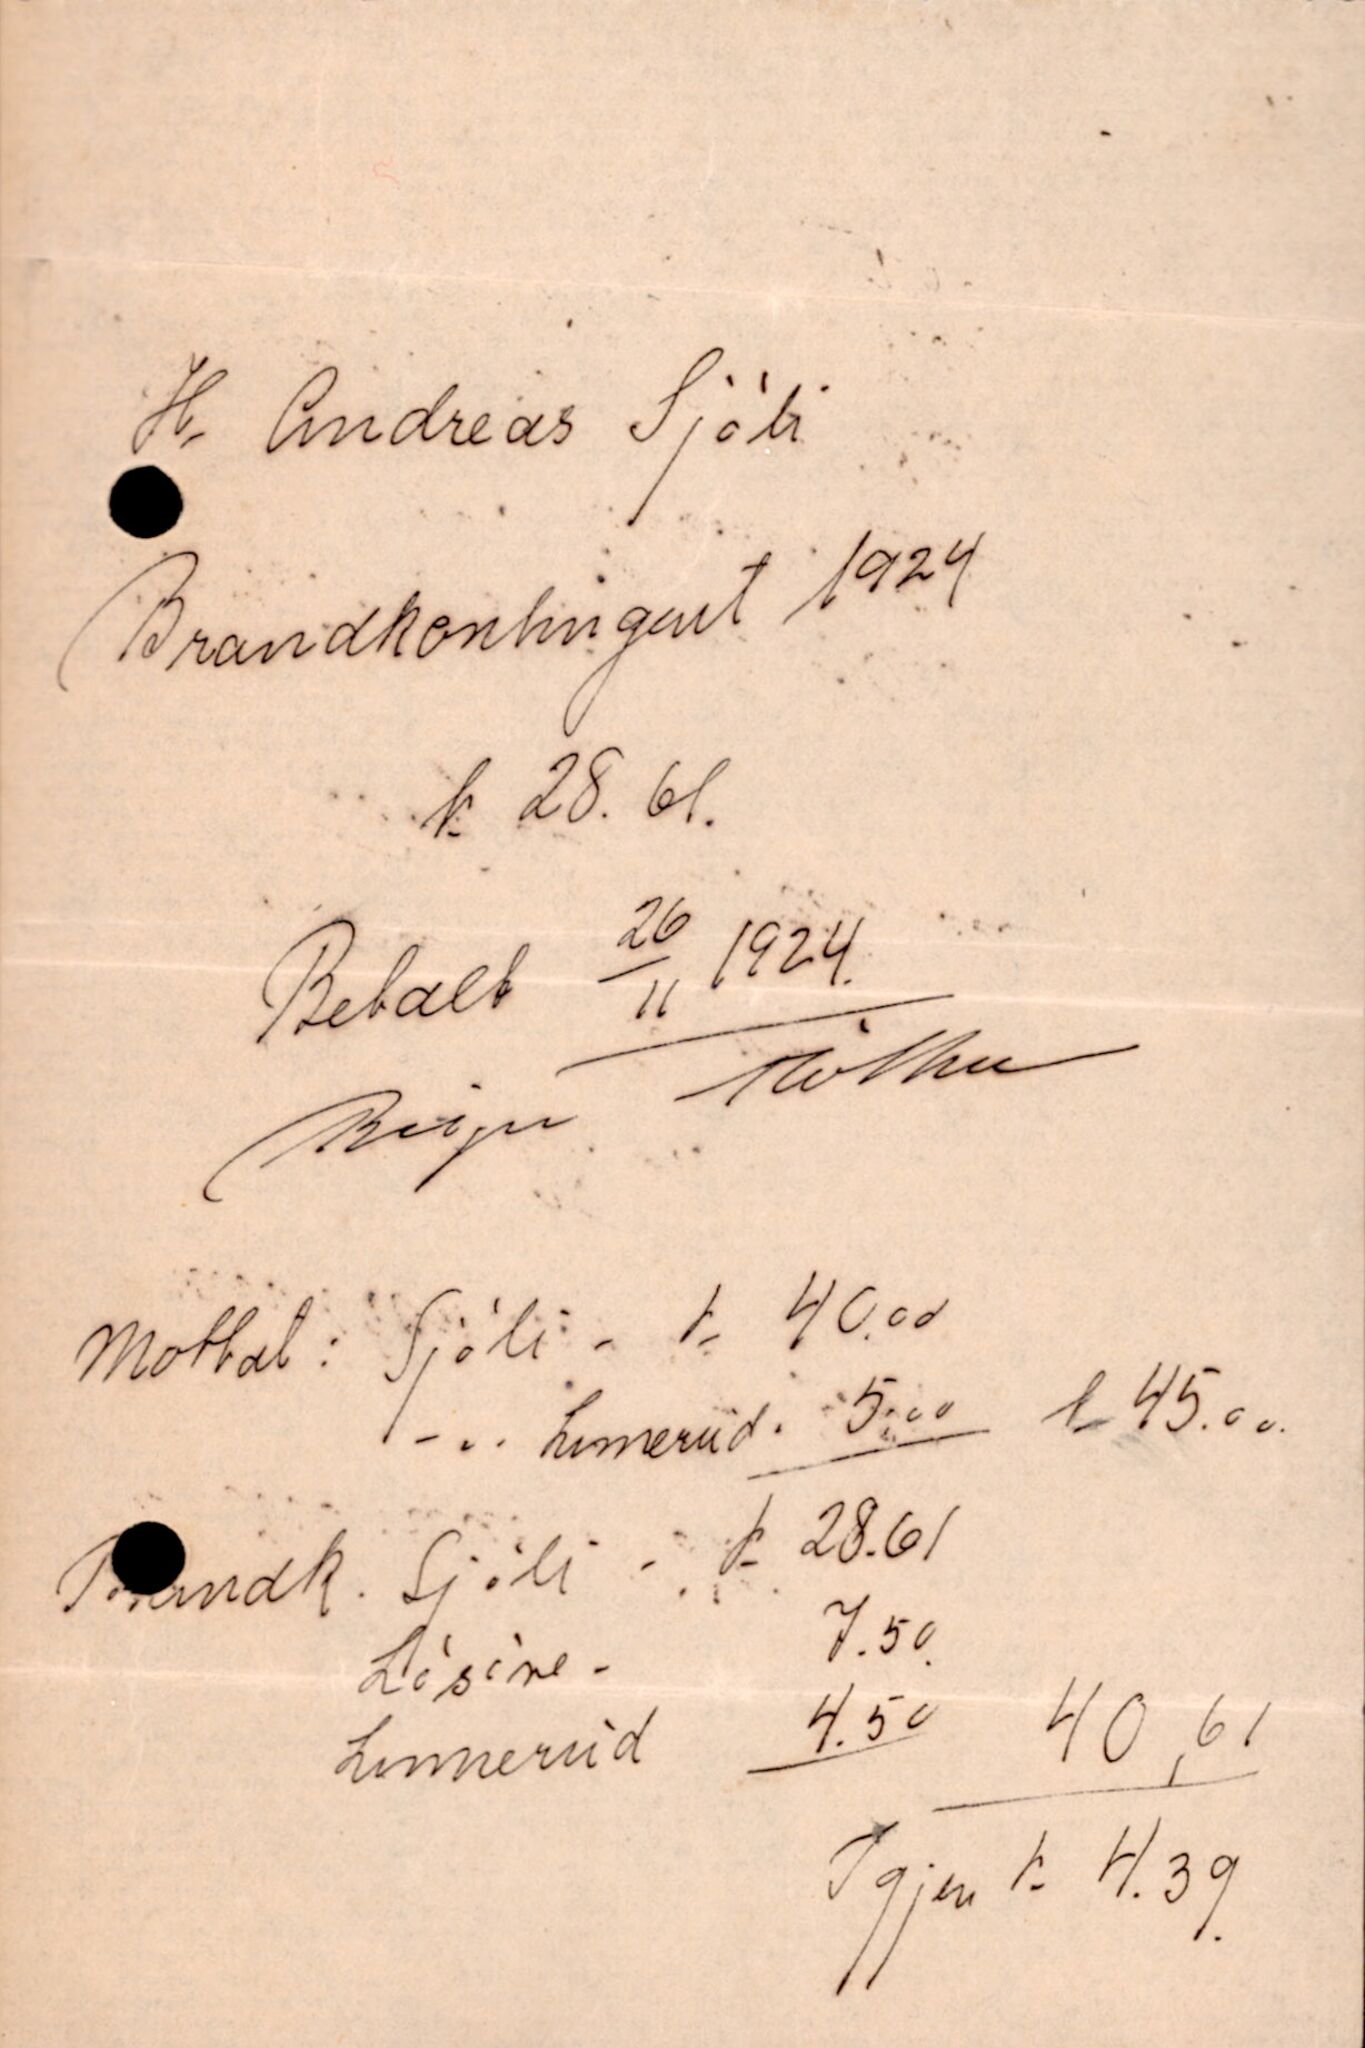 Hr. Andreas Sjöli
Brandkontingent 1924
kr 28.61.
Betalt 26/11 1924.
Birger
Mottat: Sjöli - kr 40.00
- .. Linnerud. 5.00 kr 45.00.
Brandk. Sjöli - kr 28.61
Lösöre - 7.50.
Linnerud 4.50 40,61
Igjen kr 4.39.